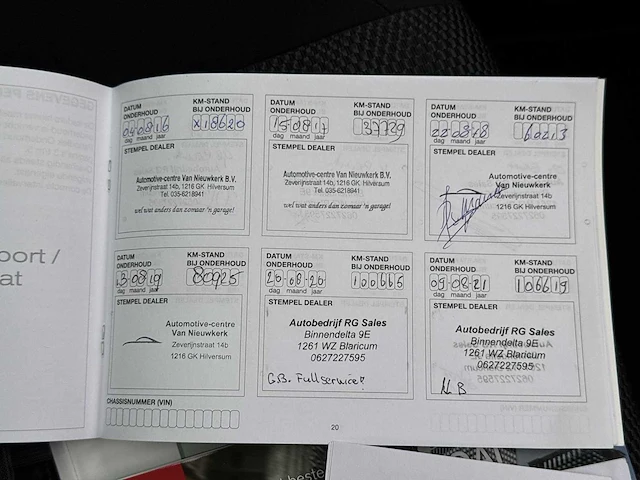 port /
at
DATUM ONDERHOUD
KM-STAND BIJ ONDERHOUD
040816
x18620
dag maand jaar
STEMPEL DEALER
Automotive-centre Van Nieuwkerk B.V.
Zeverijnstraat 14b, 1216 GK Hilversum
Tel. 035-6218941
wel wat anders dan zomaar 'n garage!
DATUM ONDERHOUD
KM-STAND BIJ ONDERHOUD
150817
37739
dag maand jaar
STEMPEL DEALER
Automotive-centre Van Nieuwkerk B.V.
Zeverijnstraat 14b, 1216 GK Hilversum
Tel. 035-6218941
wel wat anders dan zomaar 'n garage!
DATUM ONDERHOUD
KM-STAND BIJ ONDERHOUD
220818
60213
dag maand jaar
STEMPEL DEALER
Automotive-centre
Van Nieuwkerk
Zeverijnstraat 14b
1216 GK Hilversum
DATUM ONDERHOUD
KM-STAND BIJ ONDERHOUD
13-08-19
80925
dag maand jaar
STEMPEL DEALER
Automotive-centre
Van Nieuwkerk
Zeverijnstraat 14b
1216 GK Hilversum
DATUM ONDERHOUD
KM-STAND BIJ ONDERHOUD
20-08-20
100665
dag maand jaar
STEMPEL DEALER
Autobedrijf RG Sales
Binnendelta 9E
1261 WZ Blaricum
0627227595
G.B. Fullservice!
DATUM ONDERHOUD
KM-STAND BIJ ONDERHOUD
09-08-21
106619
dag maand jaar
STEMPEL DEALER
Autobedrijf RG Sales
Binnendelta 9E
1261 WZ Blaricum
0627227595
CHASSISNUMMER (VIN)
20